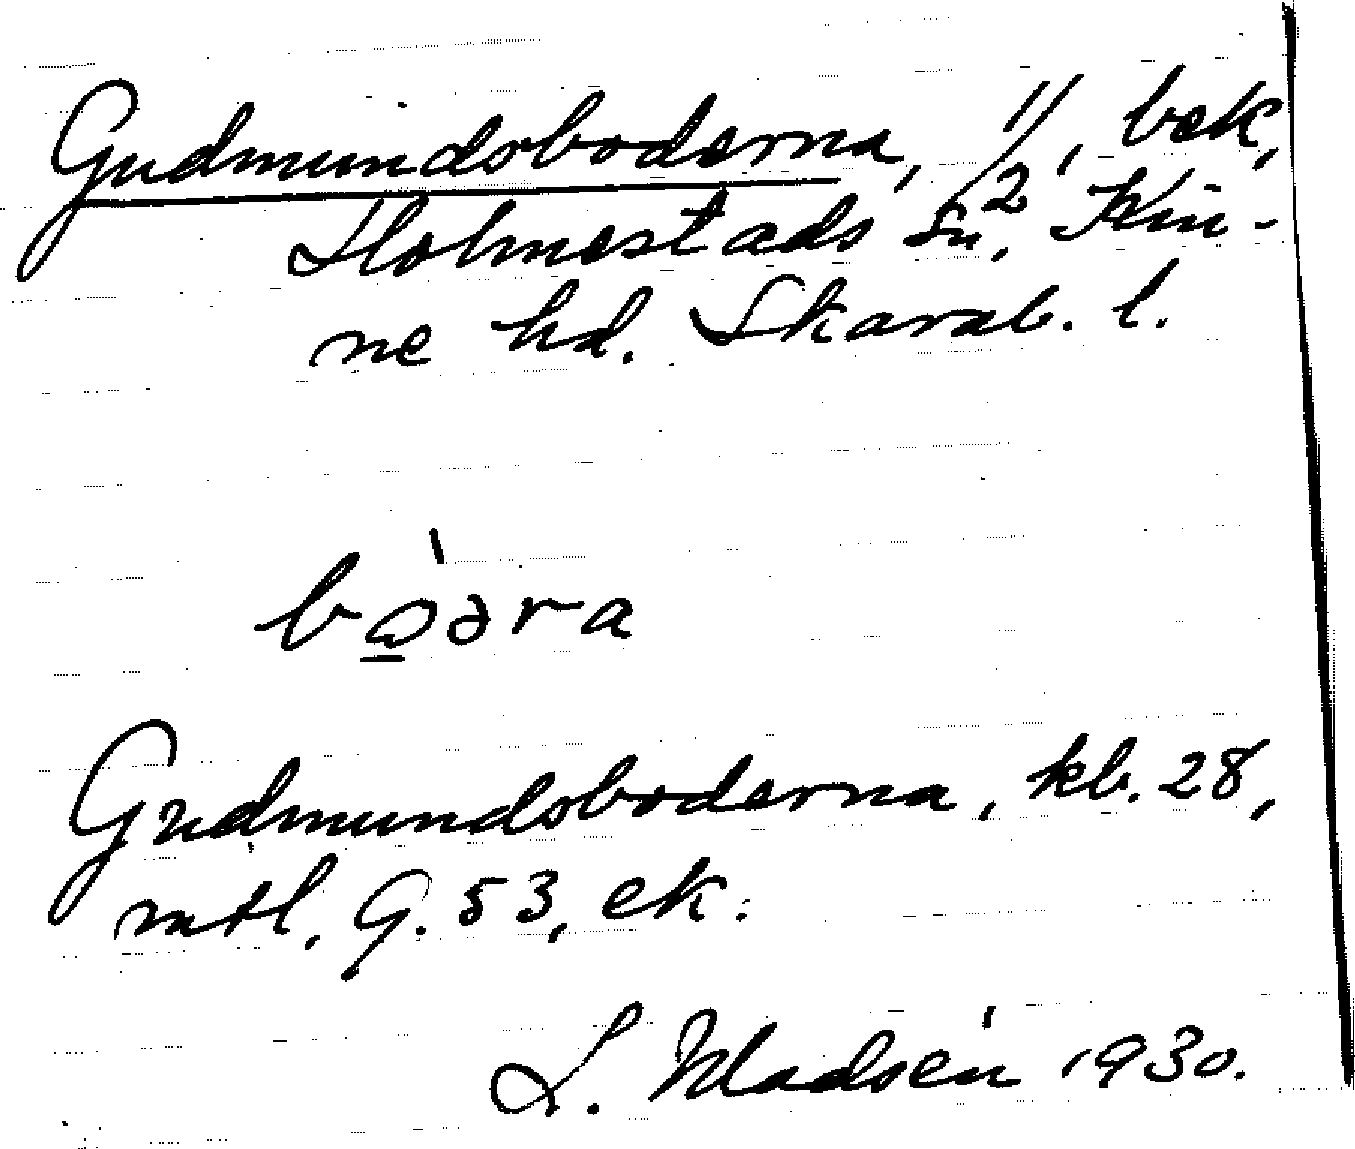 Gudmundsboderna, 1/2, bek,
Holmestads sn, Kin-
ne hd. Skarab. l.
bo̲òəra
Gudmundsboderna, kb. 28,
mtl. G. 53, ek.
L. Madsén 1930.